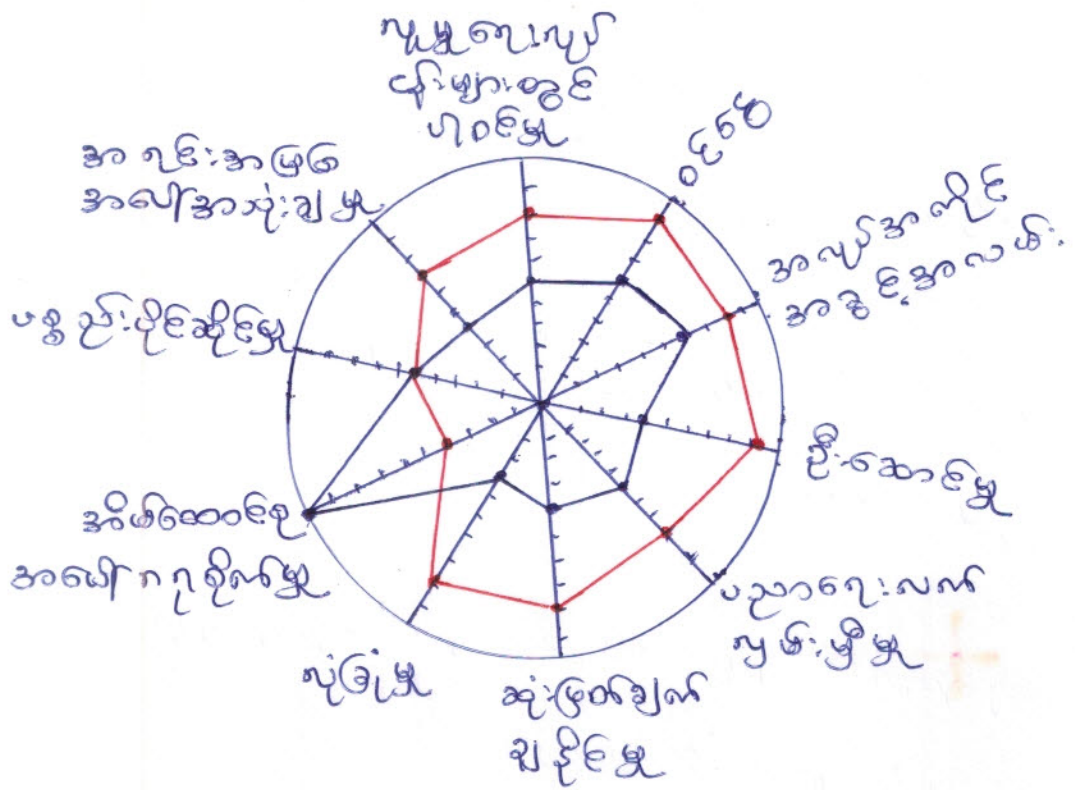 လူမှုရေးလုပ်
ငန်းများတွင်
ပါဝင်မှု
ဝင်ငွေ
အလုပ်အကိုင်
အခွင့်အလမ်း
ဦးဆောင်မှု
ပညာရေးလက်
လှမ်းမှီမှု
ဆုံးဖြတ်ချက်
ချနိုင်မှု
လုံခြုံမှု
အိမ်ထောင်စု
အပေါ်ဂရုစိုက်မှု
ပစ္စည်းပိုင်ဆိုင်မှု
အရင်းအမြစ်
အပေါ်အသုံးချမှု